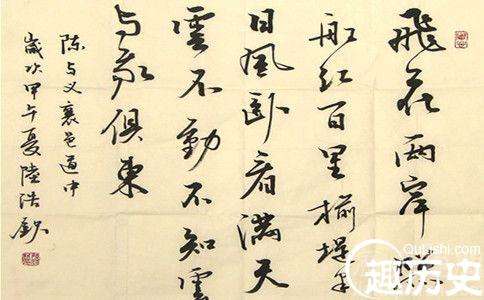 飛花兩岸
船紅百里榆堤半
日風卧看滿天
雲不動不知雲
与我俱東
陈与义襄邑道中
歲次甲午夏陸浩鈔
Qulishi.com
趣历史